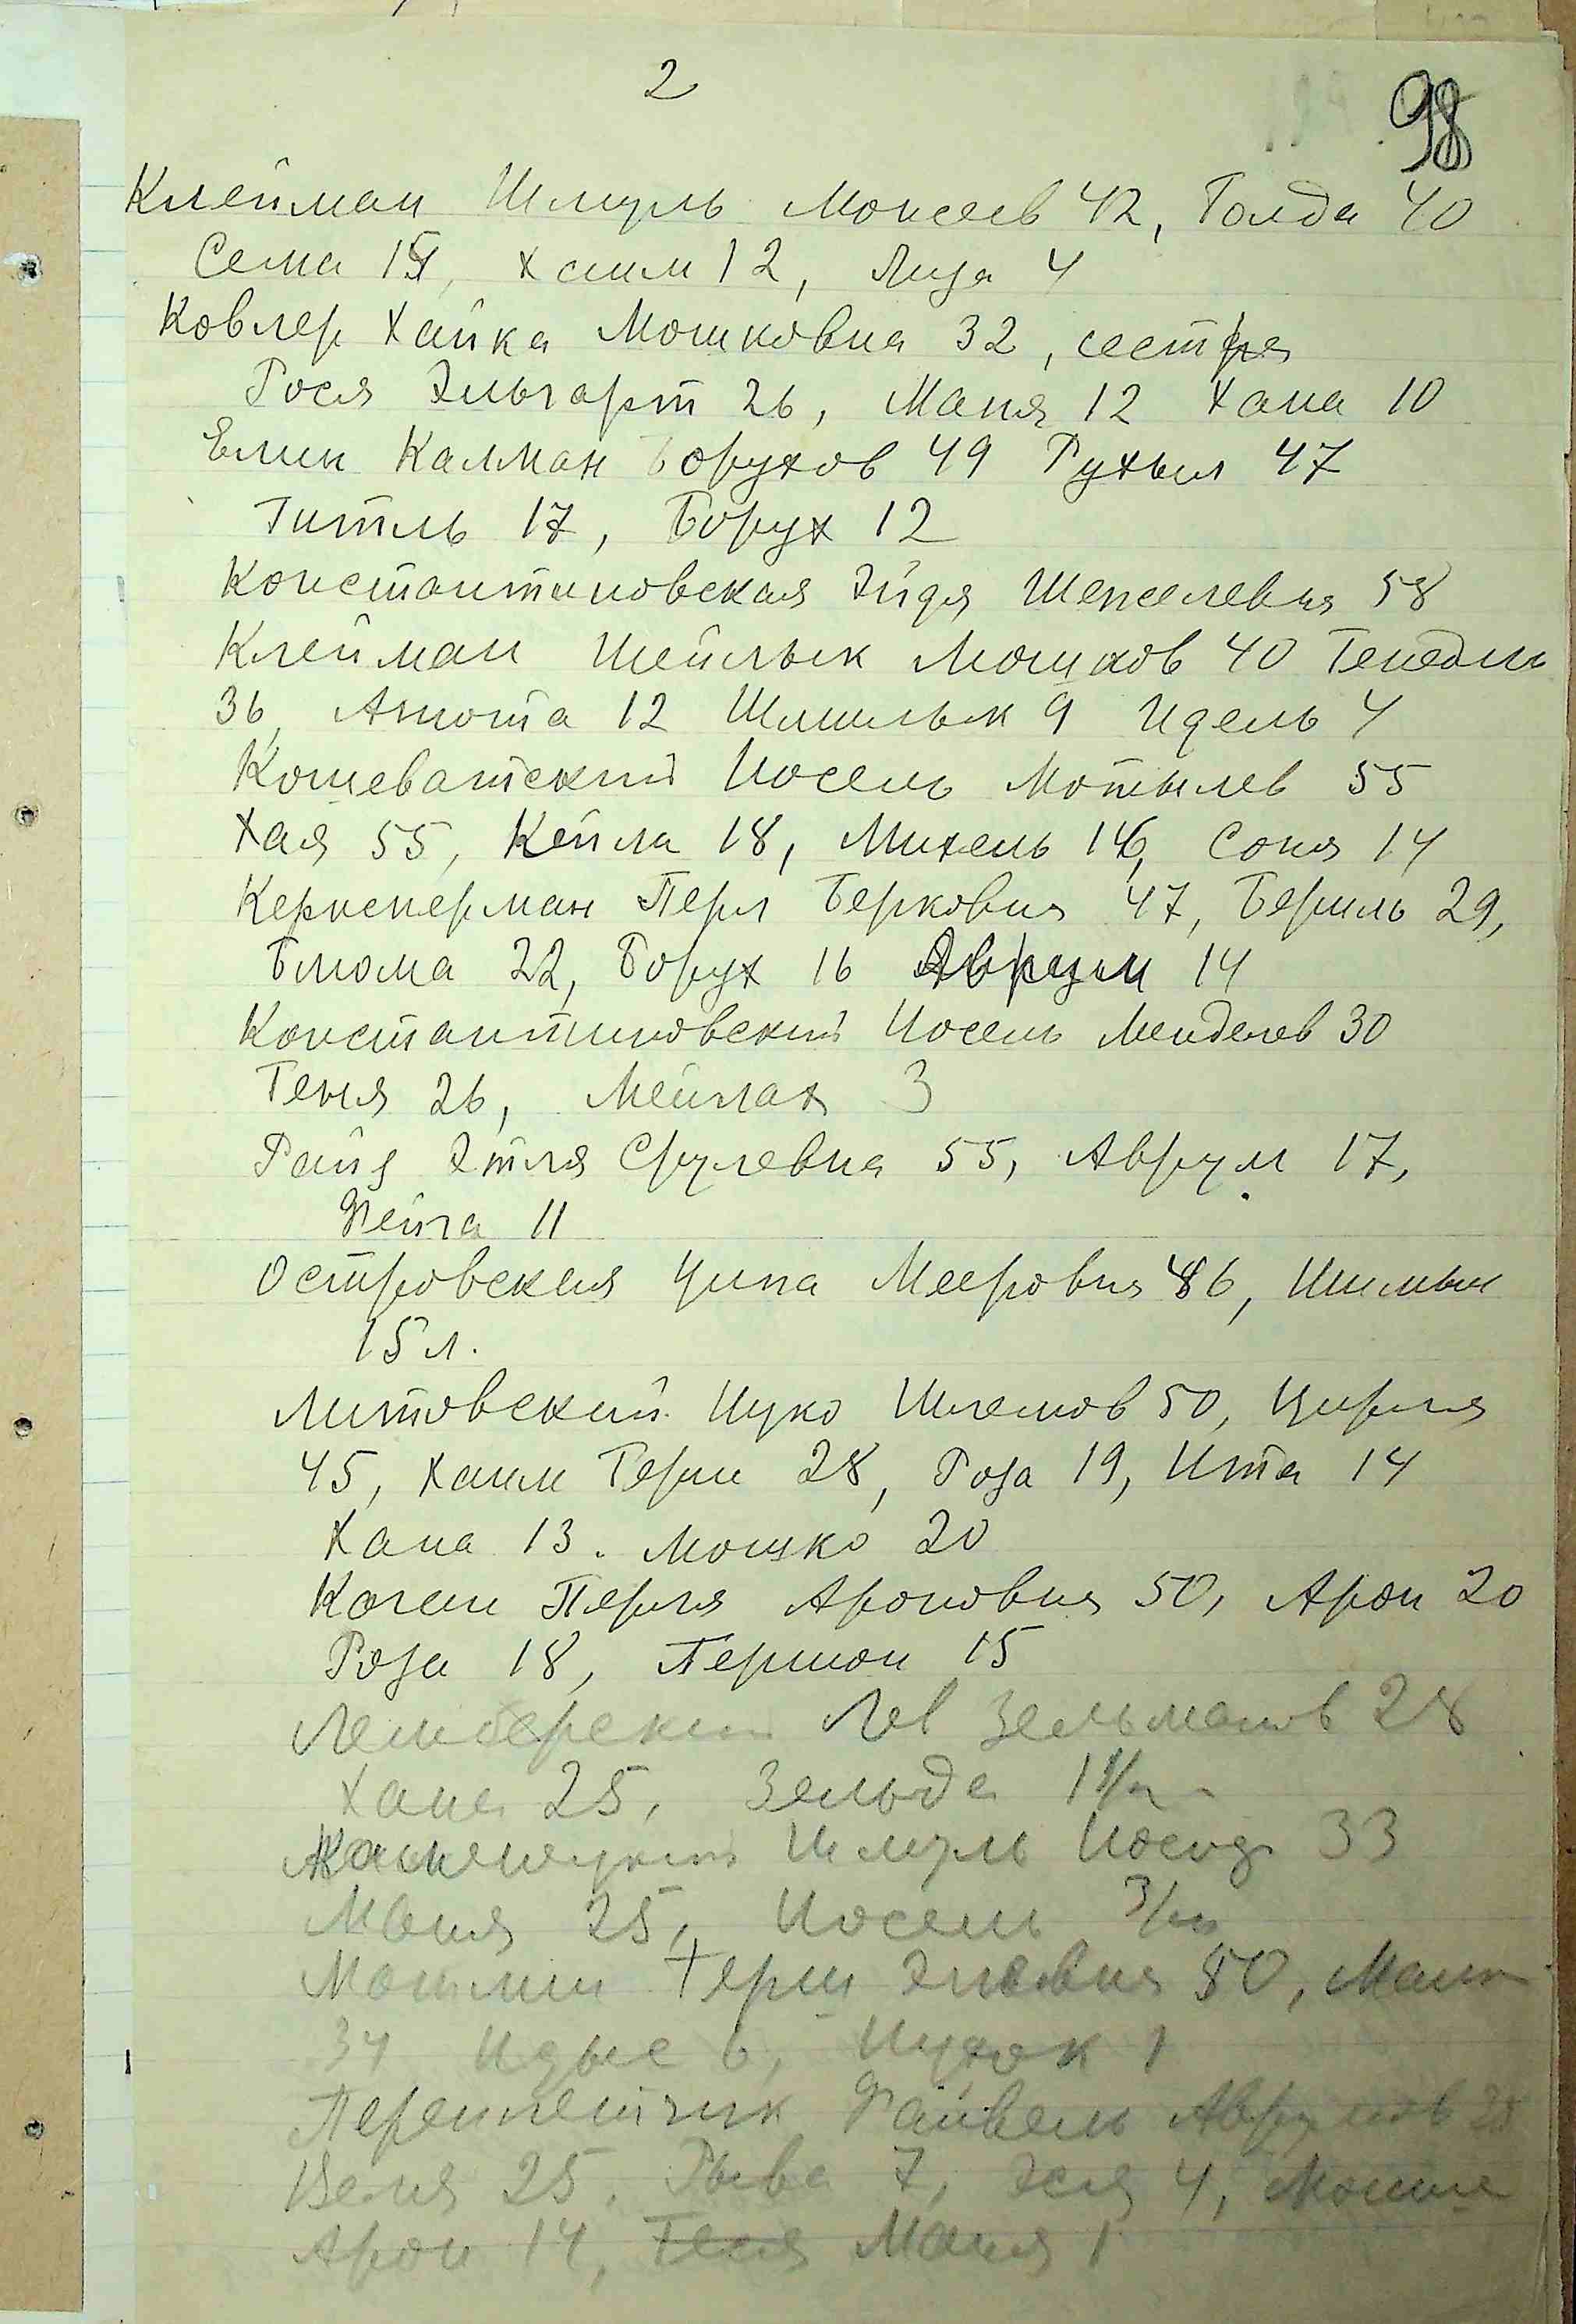 2
98
Клейман Шмуль Моисеев 42, Голда 40
Сема 15, Хаим 12, Лиза 4
Ковлер Хайка Мошковна 32, сестра
Рося Эльгарт 26, Маня 12 Хана 10
Елин Калман Борухов 49 Рухыл 47
Титль 17, Борух 12
Константиновская Эйдя Шепселевна 58
Клейман Шейлык Мошков 40 Генедль
36, Анюта 12 Шмилык 9 Идель 4
Кошеватский Иосель Мотылев 55
Хая 55, Кейла 18, Михель 16, Соня 14
Кернерман Перл Берковна 47, Бериль 29,
Блюма 22, Борух 16 Аврум 14
Константиновский Иосель Менделев 30
Геня 26, Мейлах 3
Райз Этля Срулевна 55, Аврум 17,
Фейга 11
Островская Ципа Мееровна 46, Шмилык
15 л.
Литовский Ицко Шлемов 50, Цирля
45, Хаим Герш 28, Роза 19, Ита 14
Хана 13. Мошко 20
Коган Перля Ароновна 50, Арон 20
Роза 18, Перимон 15
Лемберский Лев Зельманов 28
Хана 25, Зельда 1
Каменецкий Шмуль Иосиф 33
Маня 25, Иосель 3/м
Герш 50, Маня
34 Идыс 6, Ицхок 1
Переплетчик Файвель Аврумов 28
Веля 25, Рыва 7, Эся 4, Мошке
Арон 14, Геня Маня 1